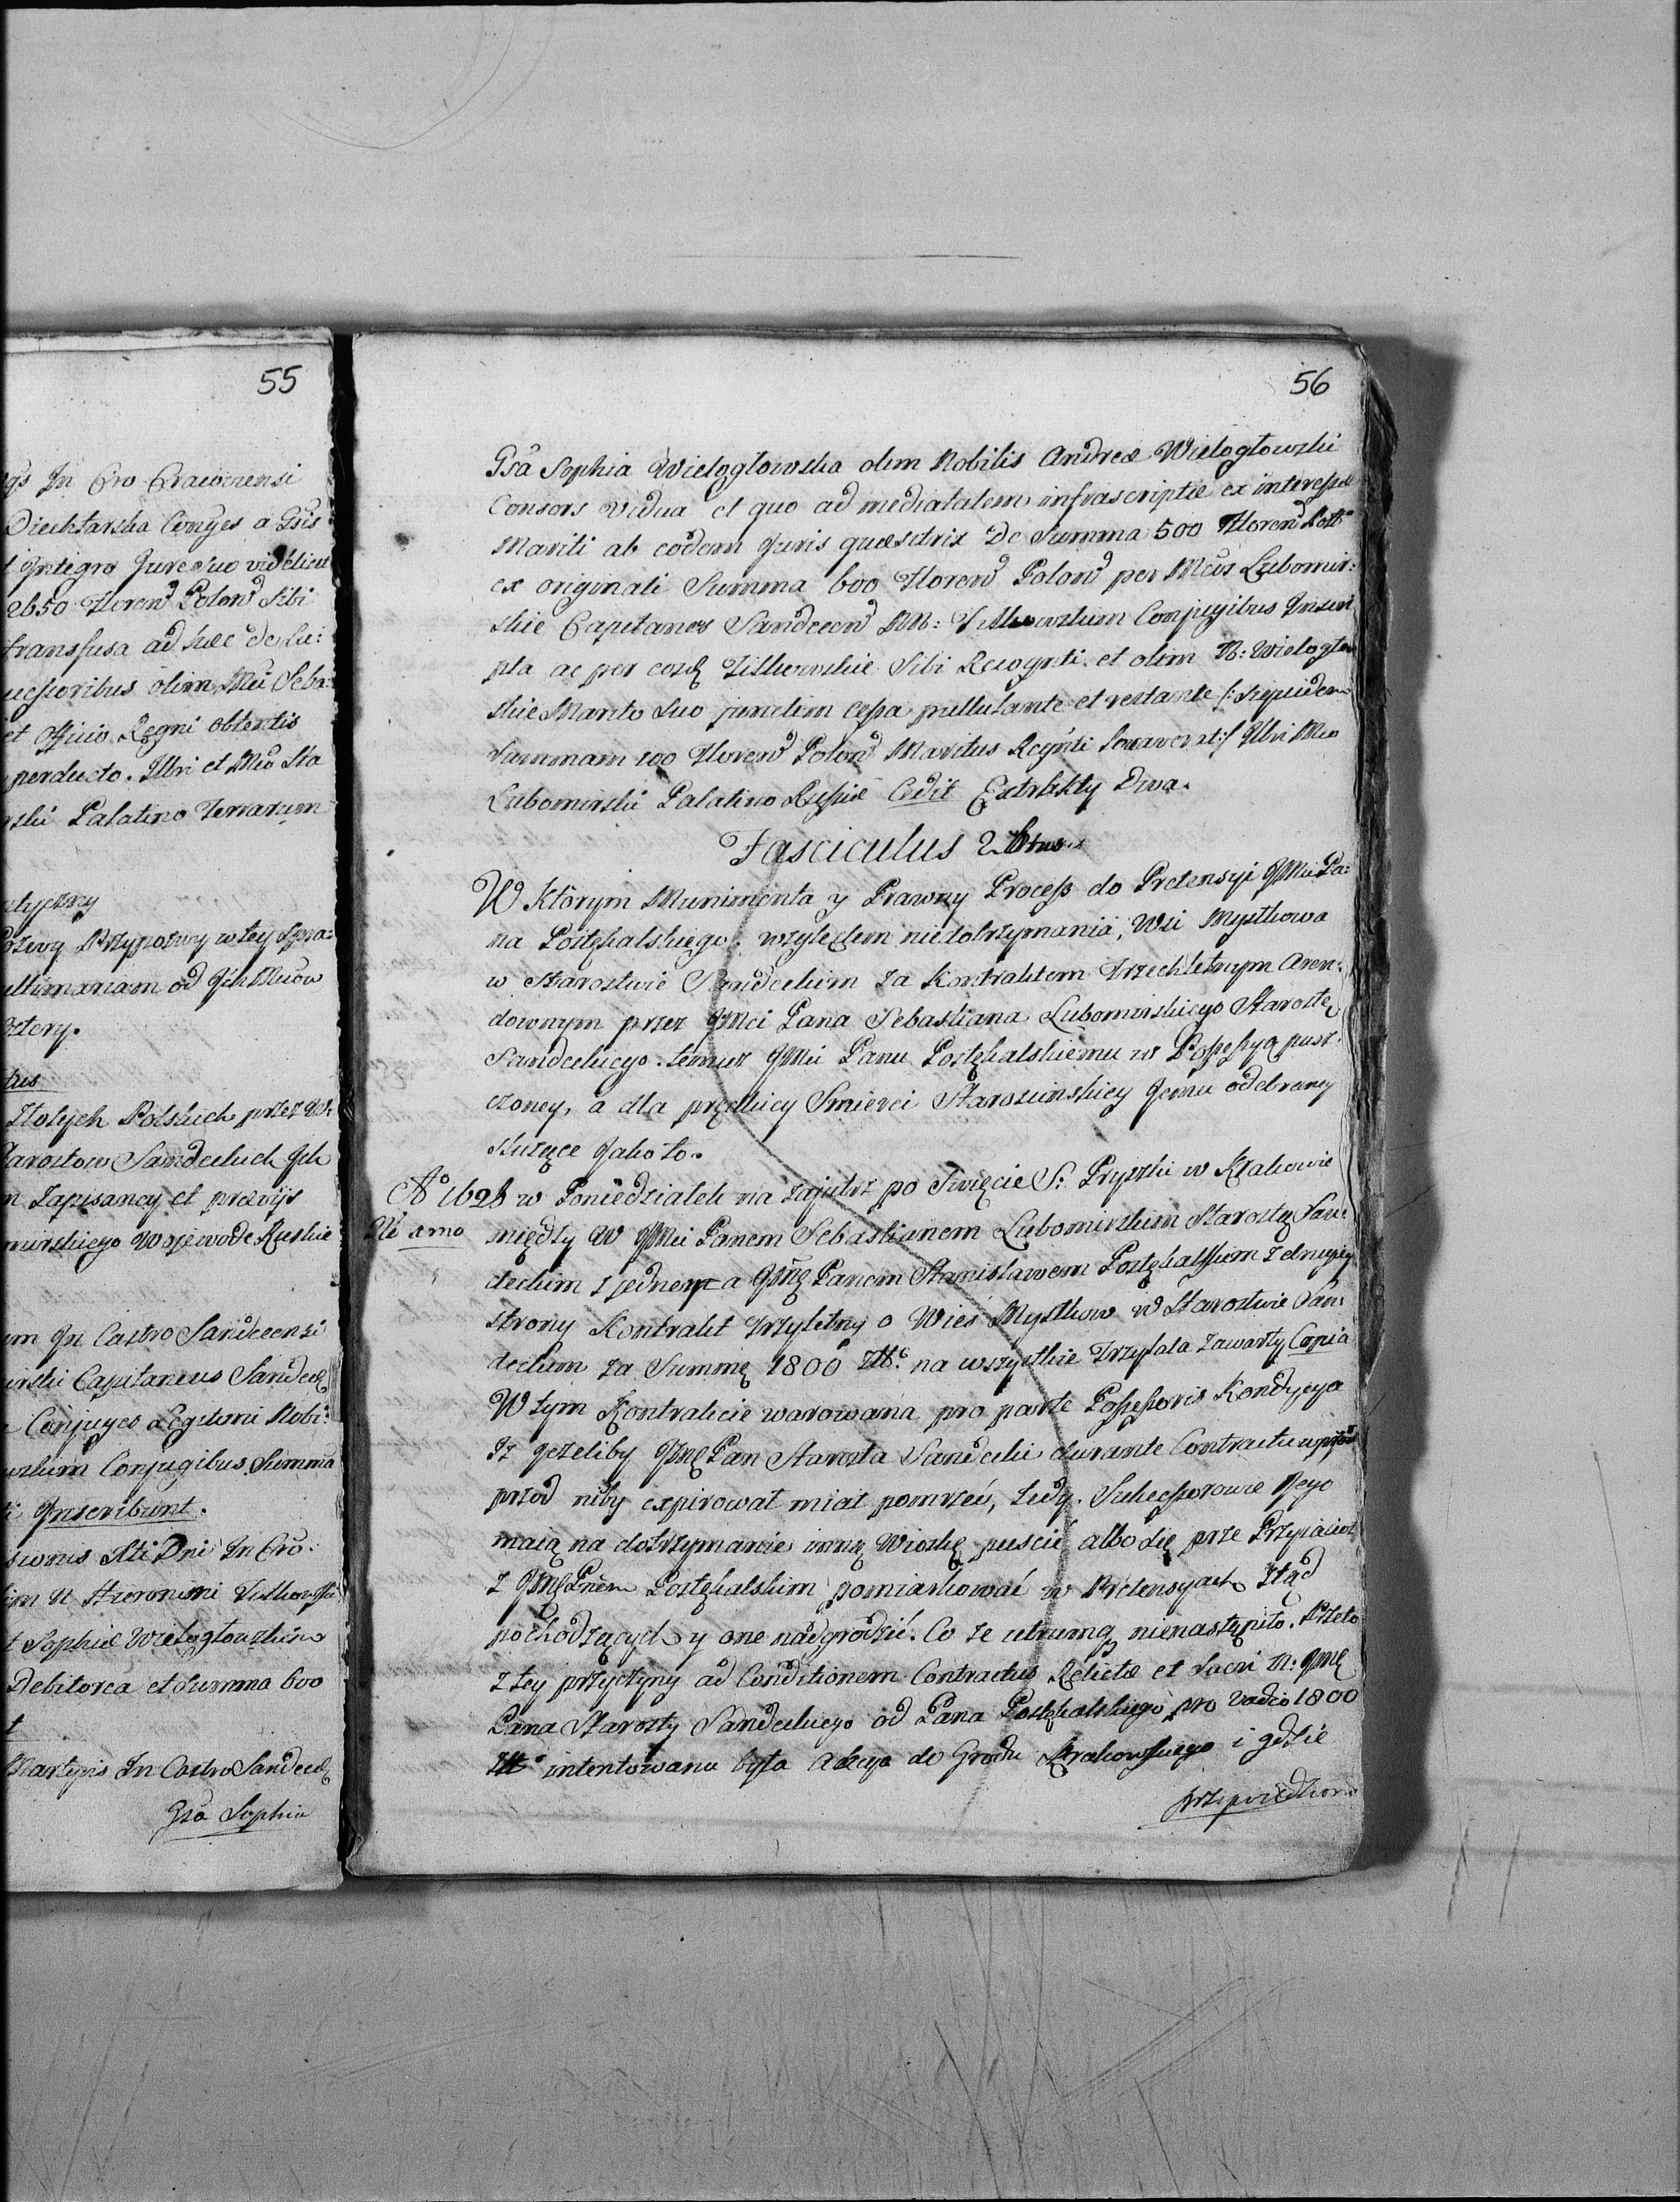 55
gs In Cro Cracoviensi
Diecktarska Conjges a Gsis
Integro Jure suo videlicet
2650 Floren Polon Sibi
transfusa ad haec de Su:
cessoribus olim Mci Seba:
et Officio Regni obtentis
perducto. Illri et Mco Sta
rski Palatino Terrarum
etyczny
Pozevy Przypozwy w tey Spra:
ultimariam od Ich Mciow
cztery.
tus
Zlotych Polskich przez W.
Starostow Sandeckich Ich
m zapisaney et praevijs
mirskiego Wojewode Ruskie
um In Castro Sandecensi
irski Capitaneus Sandec
Conjuges Legitimi Nobi:
wskim Conjugibus Summa
Inscribunt.
sionis Xti Dni In Cro.
im N Hieronimi Zitkowski
t Sophiae Wielogłowskim
Debitorea et Summa 600
t
Martyris In Castro Sandec
Gsa Sophia
56
Gsa Sophia Wielogłowska olim Nobilis Andreæ Wielogłowski
Consors Vidua et quo ad medietatem infrascriptæ ex interesse
Mariti ab eodem Juris quæsitrix De Summa 500 Floren
ex originali Summa 600 Floren Polon per Mcos Lubomir:
skie Capitaneos Sandecen NN: Conjugibus Inscri
pta ac per eosd Zitkowskie Sibi Recognti et olim N: Wielogłow
skie Marito Suo junctim cessa pullulante et restante /: siquidem
Summam 100 Floren Polon Maritus Recgnti levaverat :/ Illri Mco
Lubomirski Palatino Russiæ Cedit Extrakty Dwa.
Fasciculus 2
W Ktorym Munimenta y Prawny Process do Pretensyi JMci Pa:
na Postękalskiego, względem niedotrzymania, Wsi Mystkowa
w Starostwie Sandeckim za Kontraktem Trzechletnym Aren:
downym przez JMci Pana Sebastiana Lubomirskiego Starostę
Sandeckiego. temuż JMci Panu Postękalskiemu w Possessyą pusz:
czoney, a dla prędkiey Smierci Starosinskiey Jemu odebraney
służące Jako to.
Ao 1628 w Poniedziałek na zajutrz po Swięcie S: Pryszki w Krakowie
między W JMci Panem Sebastianem Lubomirskim Starostą San:
deckim z jedney a Panem Stanisławem Postękalskim z drugiey
strony Kontrakt trzyletny o Wieś Mystkow w Starostwie San:
deckim za Summę 1800 Złł. na wszystkie Trzy lata zawarty Copia
W tym Kontrakcie warowana pro parte Possessoris Kondycya
Iż jezeliby Pan Starosta Sandecki durante Contractu
przod niby expirował miał pomrzeć, tedy. Sukcessorowie Jego
maią na dotrzymanie inną Wioskę puscić albo się prze Przyiacioł
z Postękalskim pomiarkować w Pretensyach ztąd
pochodzących y one nadgrodzić. Co ze utrumq nienastąpiło. Przeto
z tey przyczyny ad Conditionem Contractus Relictæ et Sucri N:
Pana Starosty Sandeckiego od Pana Postękalskiego pro Vadio 1800
Złł intentowana była Akcya do Grodu Krakowskiego i gdzie